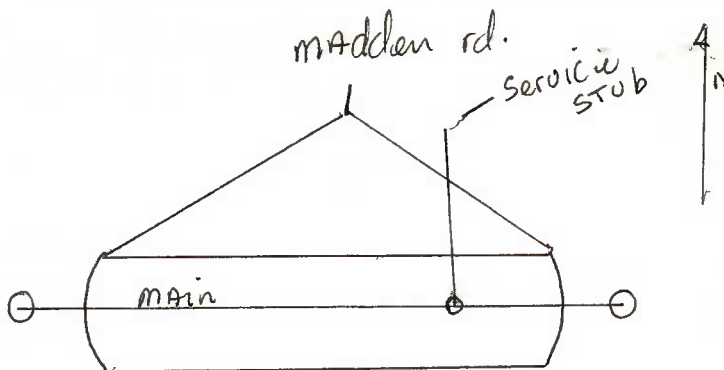 MAdden rd.
Servicie
STUb
N
MAin